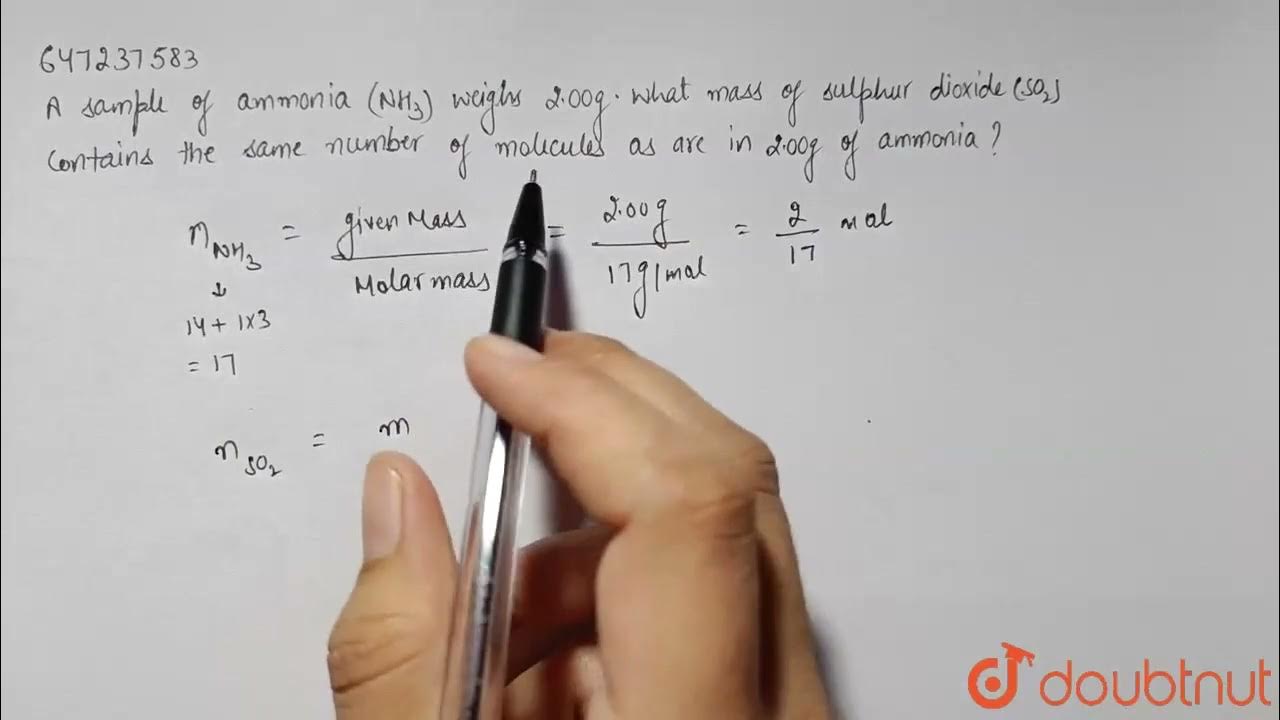 647237583
A sample of ammonia (NH3) weighs 2.00g. What mass of sulphur dioxide (SO2)
contains the same number of molecules as are in 2.00g of ammonia?
nNH3 = given Mass / Molar mass = 2.00g / 17g/mol = 2/17 mol
↓
14 + 1×3
= 17
nSO2 = m
doubtnut